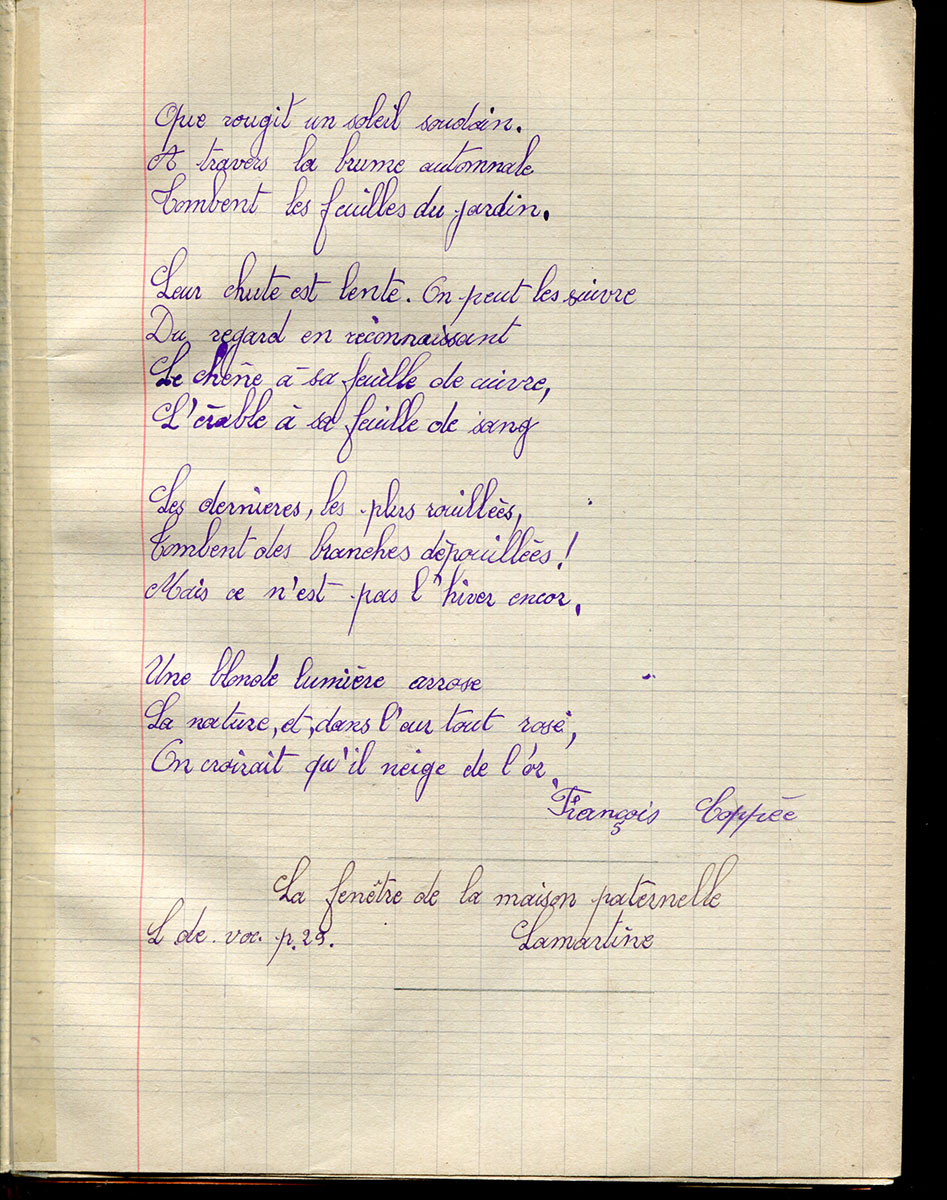 Que rougit un soleil soudain.
A travers la brume automnale
Tombent les feuilles du jardin.
Leur chute est lente. On peut les suivre
Du regard en reconnaissant
Le chêne à sa feuille de cuivre,
L'érable à sa feuille de sang
Les dernières, les plus rouillées,
Tombent des branches dépouillées!
Mais ce n'est pas l'hiver encor.
Une blonde lumière arrose
La nature, et, dans l'air tout rosé,
On croirait qu'il neige de l'or.
François Coppée
La fenêtre de la maison paternelle
L de. voc. p. 29. Lamartine